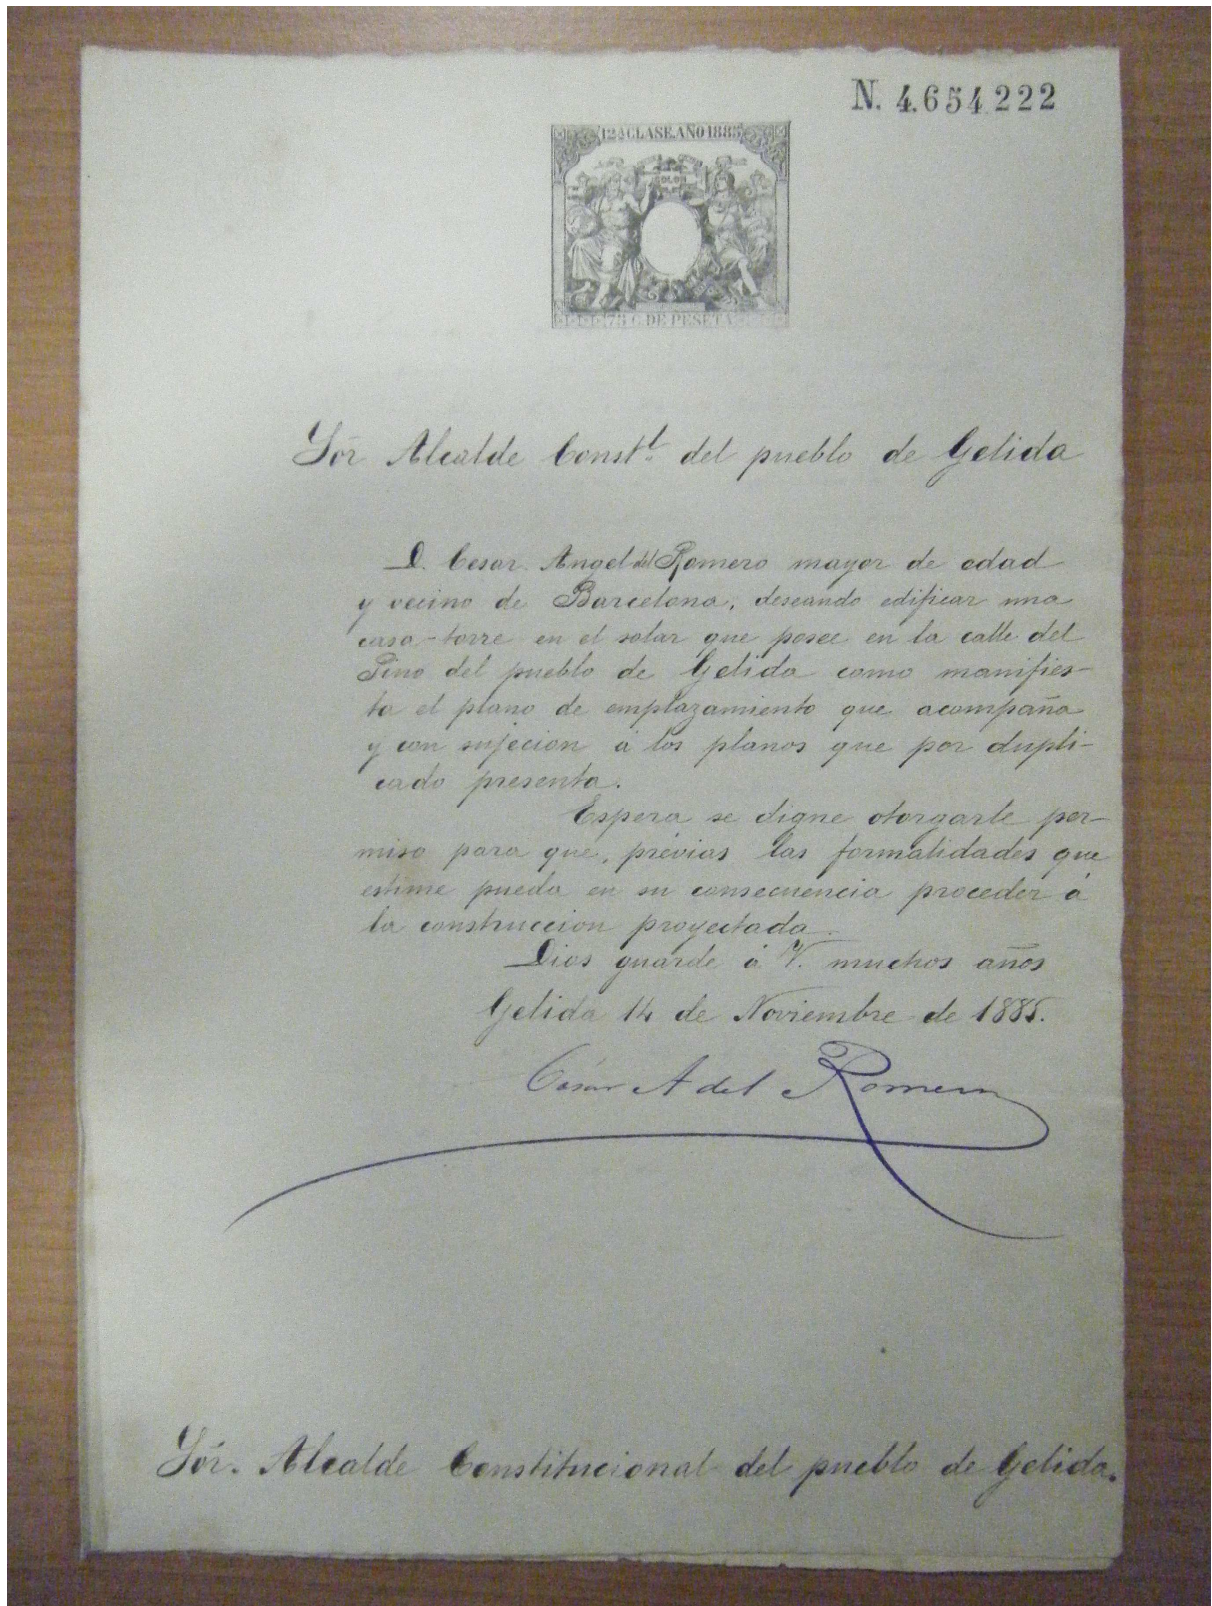 N. 4.654.222
12ª CLASE. AÑO 1885
COLON
75 C. DE PESETA
Sór Alcalde Constl. del pueblo de Gelida
D. Cesar Angel del Romero mayor de edad
y vecino de Barcelona, deseando edificar una
casa-torre en el solar que posee en la calle del
Pino del pueblo de Gelida como manifies-
ta el plano de emplazamiento que acompaña
y con sujecion á los planos que por dupli-
cado presenta.
Espera se digne otorgarle per-
miso para que, prévias las formalidades que
estime pueda en su consecuencia proceder á
la construccion proyectada.
Dios guarde á V. muchos años
Gelida 14 de Noviembre de 1885.
César A del Romero
Sór. Alcalde Constitucional del pueblo de Gelida.